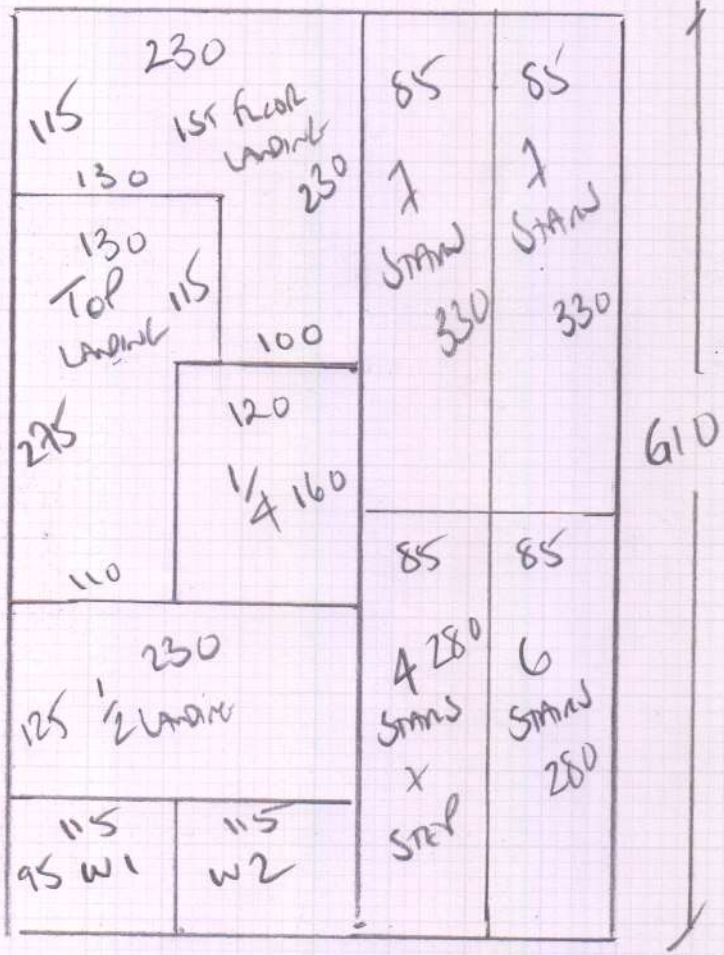 230
115
1ST FLOOR
LANDING
130
230
130
TOP
LANDING
115
100
275
120
1/4 160
110
230
125 1/2 LANDING
115
95 W1
115
W2
85
7
STAIRS
330
85
7
STAIRS
330
85
4 280
STAIRS
X
STEP
85
6
STAIRS
280
610